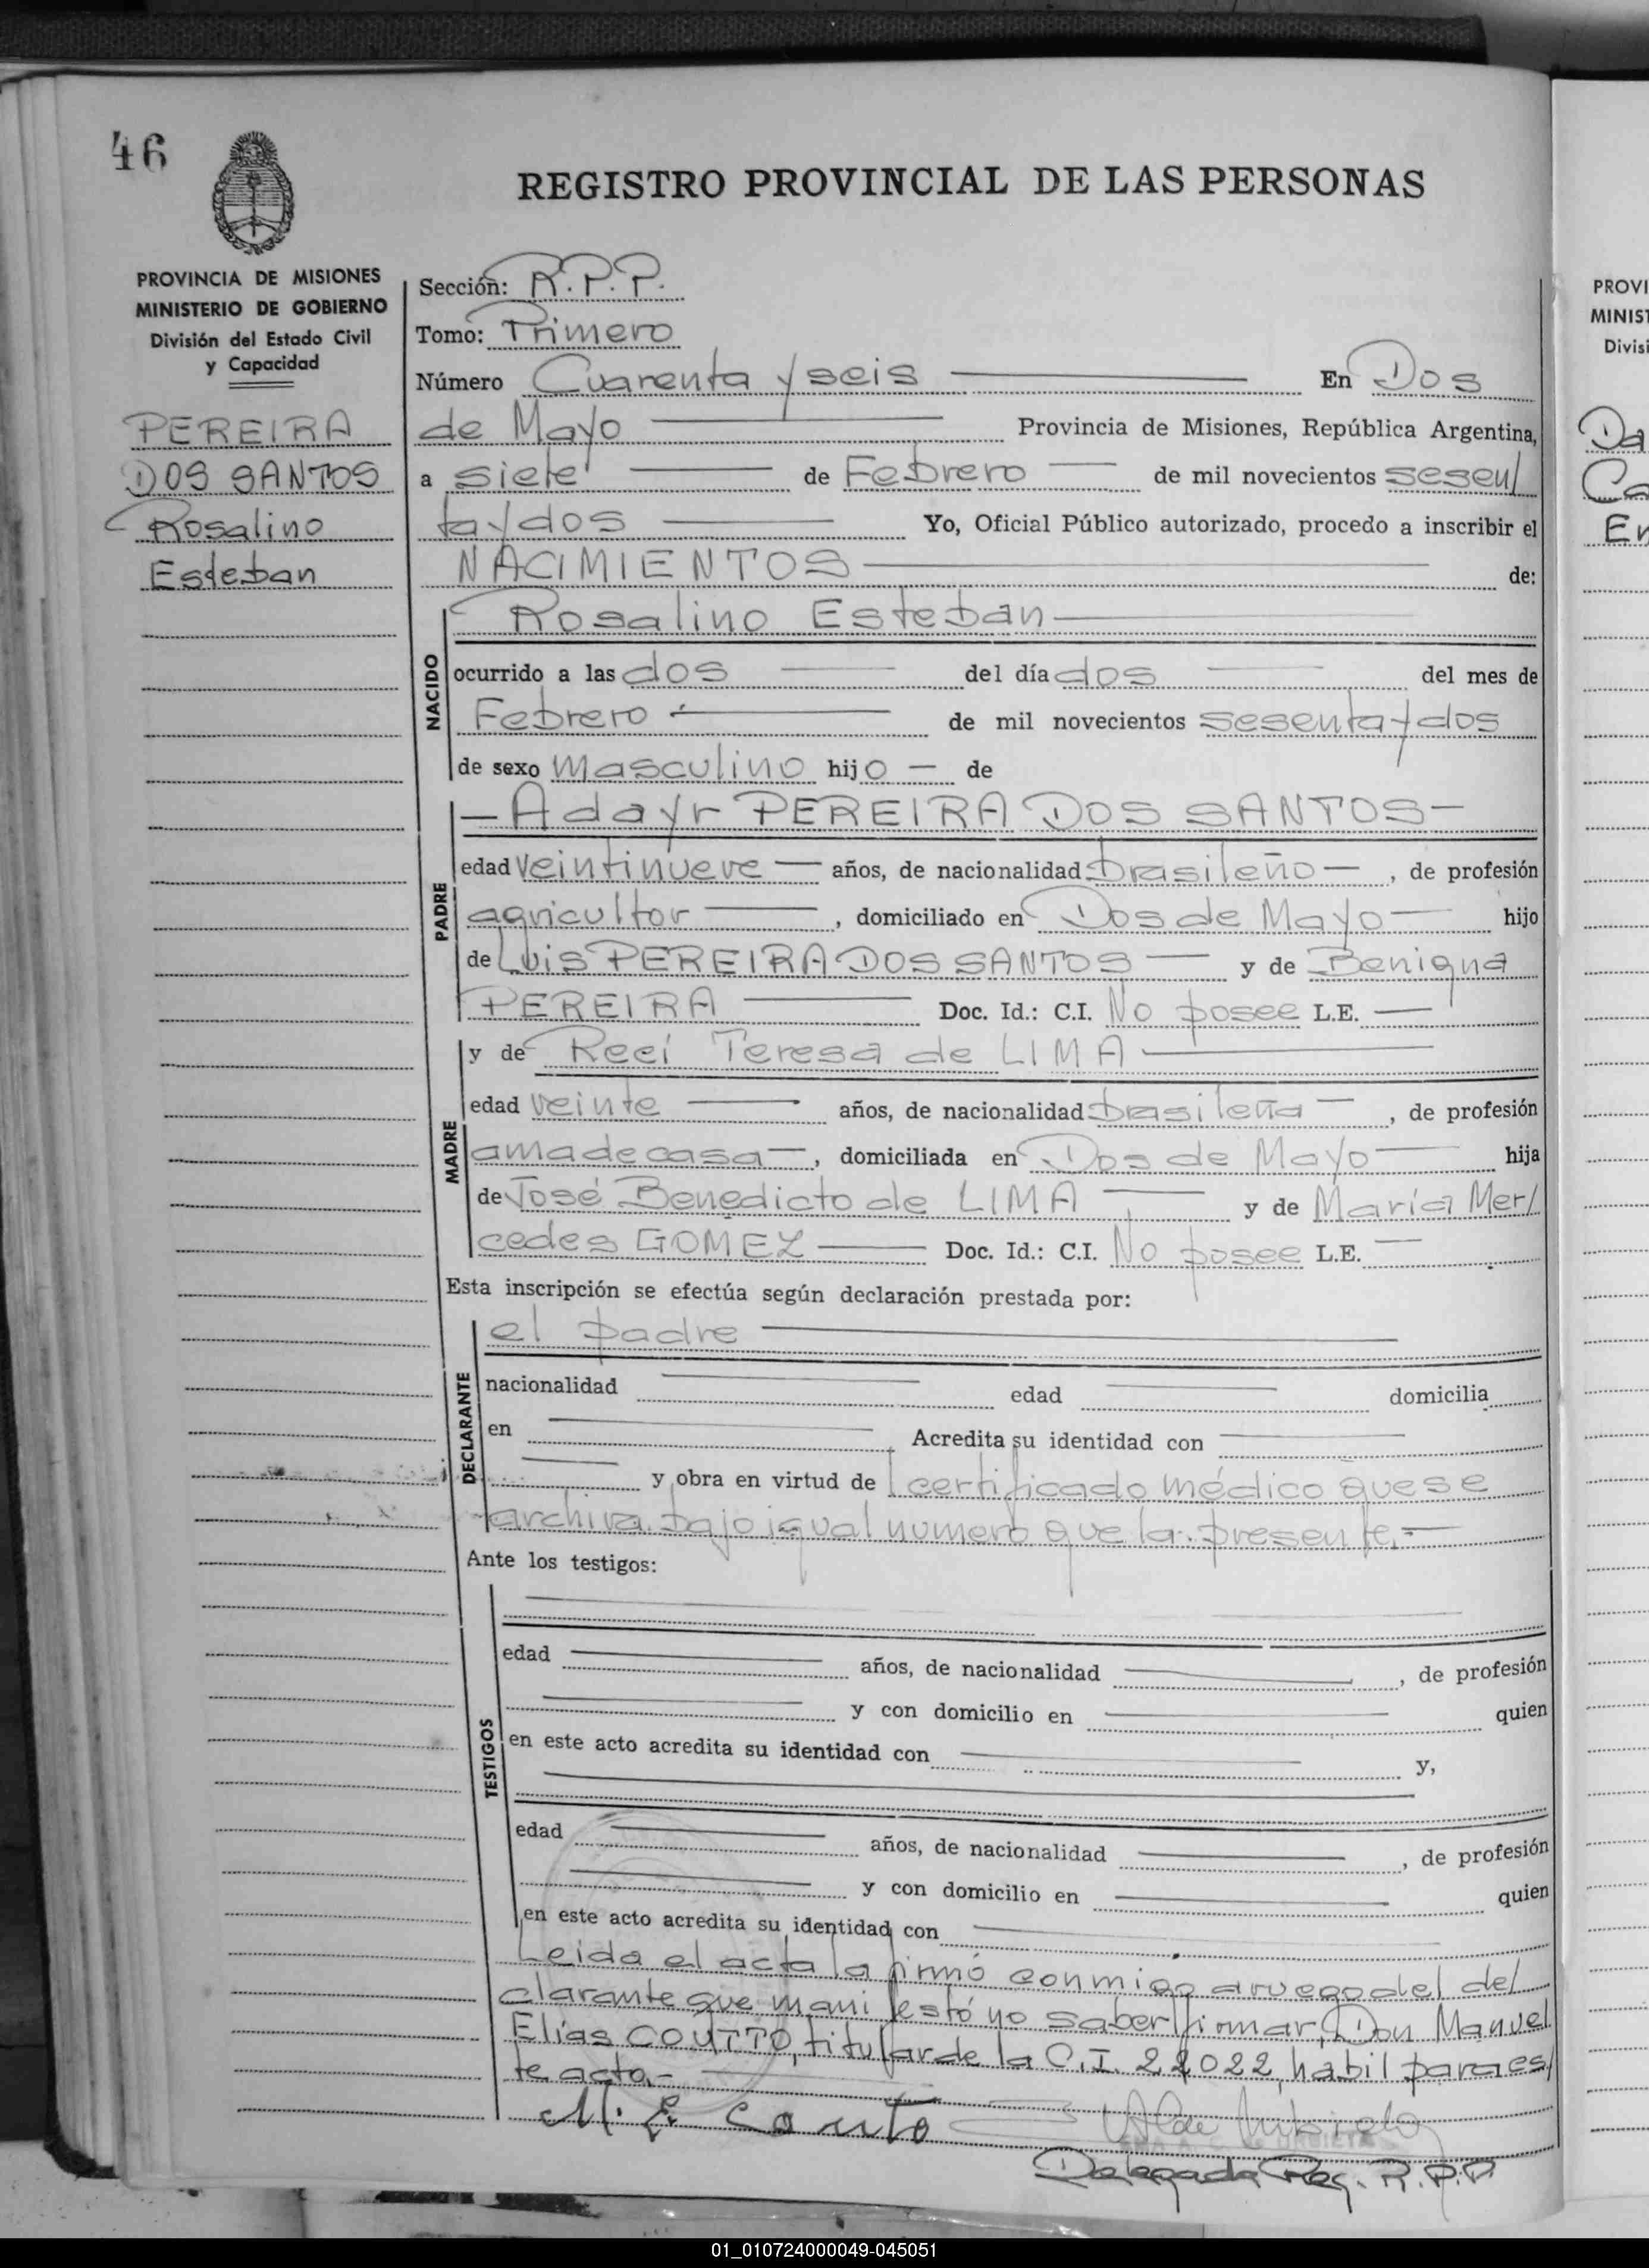 46
REGISTRO PROVINCIAL DE LAS PERSONAS
PROVINCIA DE MISIONES
MINISTERIO DE GOBIERNO
División del Estado Civil
y Capacidad
PEREIRA
DOS SANTOS
Rosalino
Esteban
Sección: R.P.P.
Tomo: Primero
Número Cuarenta y seis — En Dos
de Mayo — Provincia de Misiones, República Argentina,
a siete — de Febrero — de mil novecientos sesen/
ta y dos — Yo, Oficial Público autorizado, procedo a inscribir el
NACIMIENTOS — de:
NACIDO
Rosalino Esteban —
ocurrido a las dos — del día dos — del mes de
Febrero — de mil novecientos sesenta y dos
de sexo masculino hijo — de
PADRE
— Adayr PEREIRA DOS SANTOS —
edad veintinueve — años, de nacionalidad brasileño —, de profesión
agricultor —, domiciliado en Dos de Mayo — hijo
de Luis PEREIRA DOS SANTOS — y de Benigna
PEREIRA — Doc. Id.: C.I. No posee L.E. —
MADRE
y de Reci Teresa de LIMA —
edad veinte — años, de nacionalidad brasileña —, de profesión
ama de casa —, domiciliada en Dos de Mayo — hija
de José Benedicto de LIMA — y de María Mer/
cedes GOMEZ — Doc. Id.: C.I. No posee L.E. —
Esta inscripción se efectúa según declaración prestada por:
DECLARANTE
el padre —
nacionalidad — edad — domicilia
en — Acredita su identidad con —
— y obra en virtud de certificado médico que se
archiva bajo igual numero que la presente.—
Ante los testigos:
TESTIGOS
edad — años, de nacionalidad —, de profesión
— y con domicilio en — quien
en este acto acredita su identidad con — y,
edad — años, de nacionalidad —, de profesión
— y con domicilio en — quien
en este acto acredita su identidad con —
Leida el acta la firmó conmigo a ruego del de/
clarante que manifestó no saber firmar, Don Manuel
Elías COUTTO, titular de la C.I. 22022, habil para es/
te acto.—
M. E. Couto
Delegada Reg. R.P.P.
PROVI
MINIST
Divisi
Da
Ca
En
01_010724000049-045051